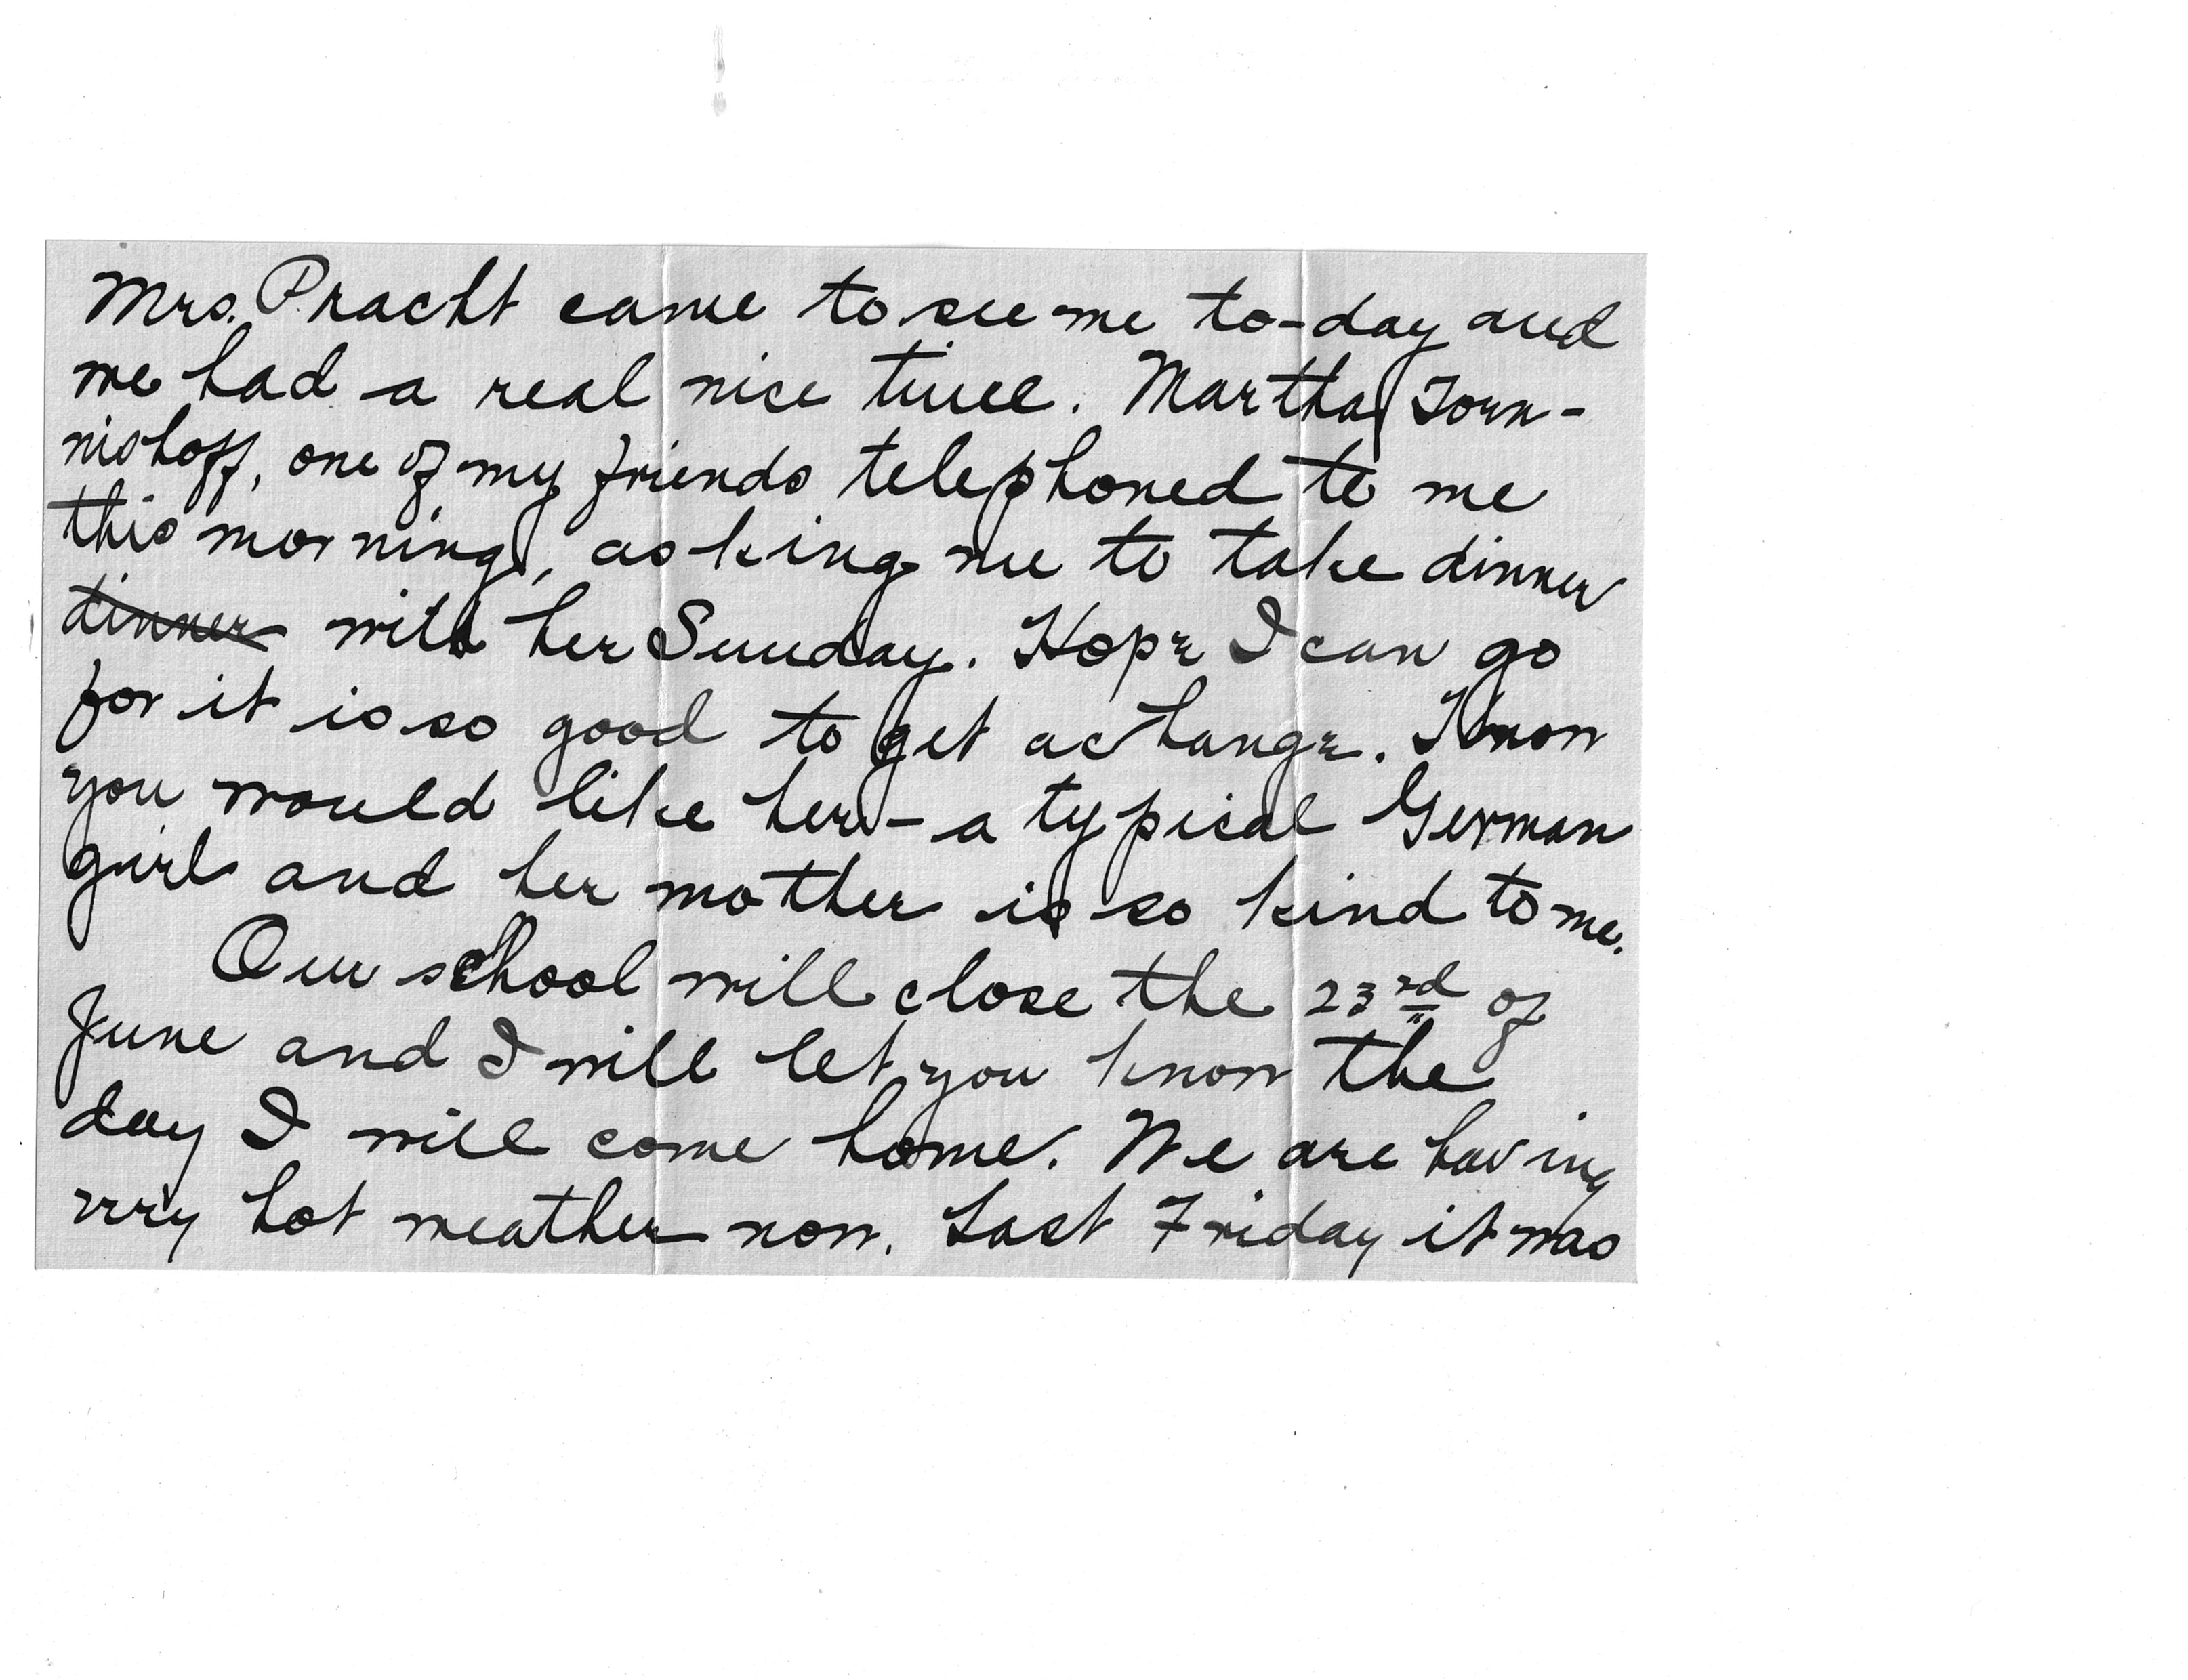 Mrs. Pracht came to see me to-day and
we had a real nice time. Martha Torn-
nishoff, one of my friends telephoned to me
this morning, asking me to take dinner
dinner with her Sunday. Hope I can go
for it is so good to get a change. I know
you would like her - a typical German
girl and her mother is so kind to me.
Our school will close the 23rd of
June and I will let you know the
day I will come home. We are having
very hot weather now. Last Friday it was